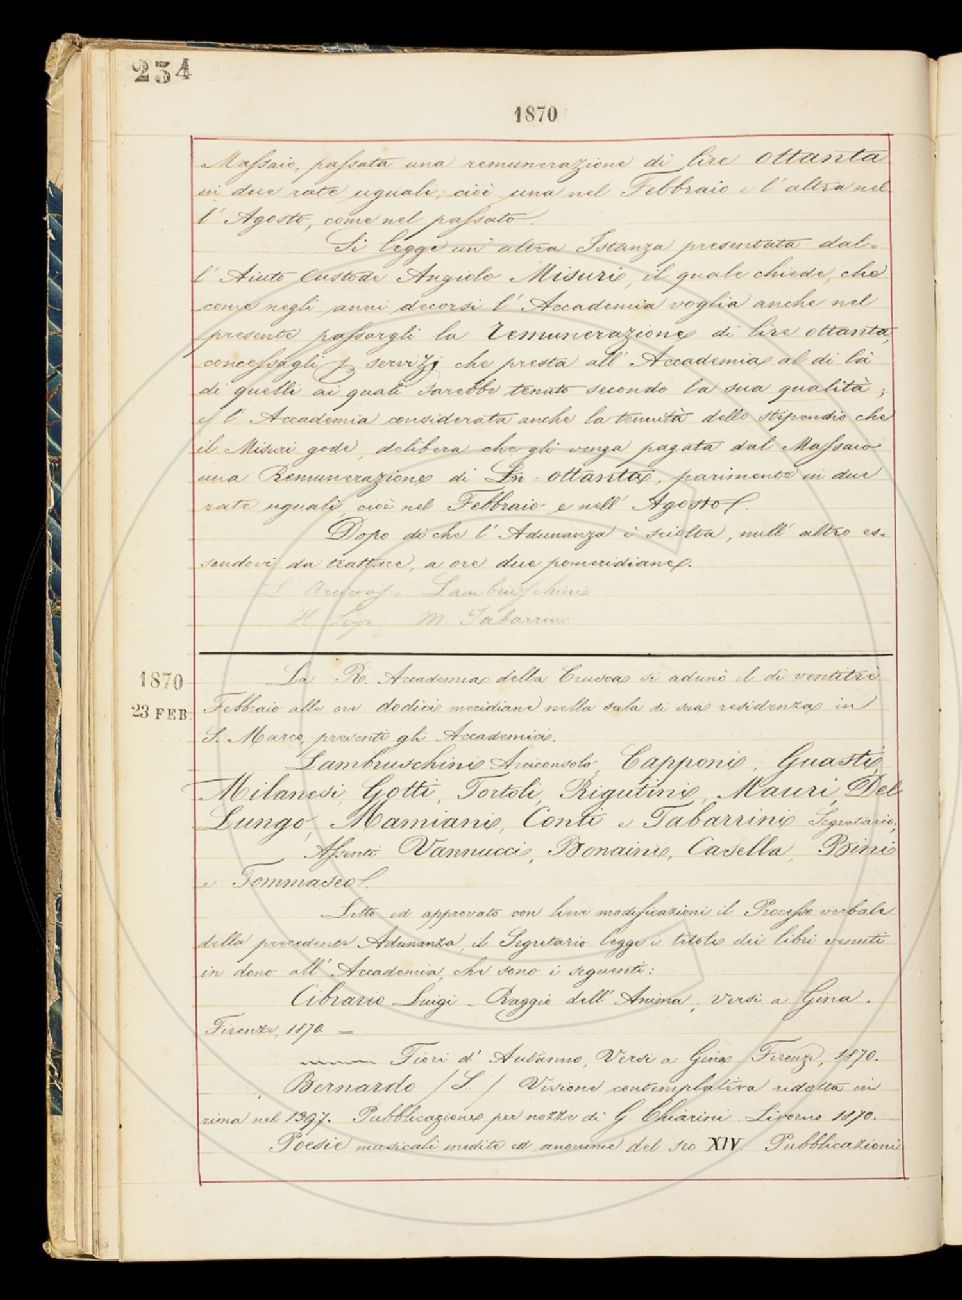 234
1870
Massaio, passata una remunerazione di lire ottanta
in due rate uguali, cioè una nel Febbraio e l'altra nel
l'Agosto, come nel passato.
Si legge un'altra Istanza presentata dal=
l'Aiuto Custode Angiolo Misuri, il quale chiede, che
come negli anni decorsi l'Accademia voglia anche nel
presente passargli la remunerazione di lire ottanta,
concessagli servizj che presta all'Accademia al di là
di quelli ai quali sarebbe tenuto secondo la sua qualità;
e l'Accademia considerata anche la tenuità dello stipendio che
il Misuri gode, delibera che gli venga pagata dal Massaio
una Remunerazione di Ln. ottanta, parimente in due
rate uguali, cioè nel Febbraio e nell'Agosto.
Dopo di che l'Adunanza è sciolta, null'altro es=
sendovi da trattare, a ore due pomeridiane.
L' Lambruschini
Il Segr. M. Tabarrini
1870
23 FEB.
La R. Accademia della Crusca si adunò il dì ventitrè
Febbraio alle ore dodici meridiane nella sala di sua residenza in
S. Marco, presenti gli Accademici.
Lambruschini Arciconsolo, Capponi, Guasti,
Milanesi, Gotti, Tortoli, Rigutini, Mauri, Del
Lungo, Mamiani, Conti e Tabarrini Segretario,
Assenti Vannucci, Bonaini, Casella, Bini
e Tommaseo.
Letto ed approvato con lievi modificazioni il Processo verbale
della precedente Adunanza, il Segretario legge i titoli dei libri venuti
in dono all'Accademia, che sono i seguenti:
Cibrario Luigi - Raggio dell'Anima, Versi a Gina.
Firenze, 1870. —
Fiori d'Autunno, Versi a Gina. Firenze, 1870.
Bernardo / S. / Visione contemplativa ridotta in
rima nel 1397. Pubblicazione per nozze di G Chiarini. Livorno 1870.
Poesie musicali inedite ed anonime del sec XIV. Pubblicazioni